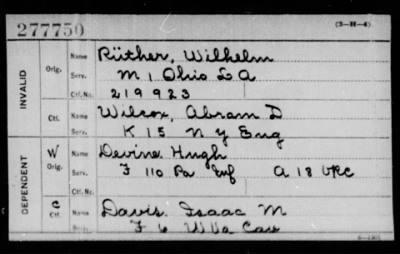 277750
(3-H-4)
INVALID
Orig. Name Rüther, Wilhelm
Serv. M 1 Ohio L A
Ctf. No. 219923
Ctf. Name Wilcox, Abram D
Serv. K 15 N Y Eng
DEPENDENT
W Orig. Name Devine Hugh
Serv. F 110 Pa Inf A 18 VRC
Ctf. No.
C Ctf. Name Davis Isaac M
Serv. F 6 W Va Cav